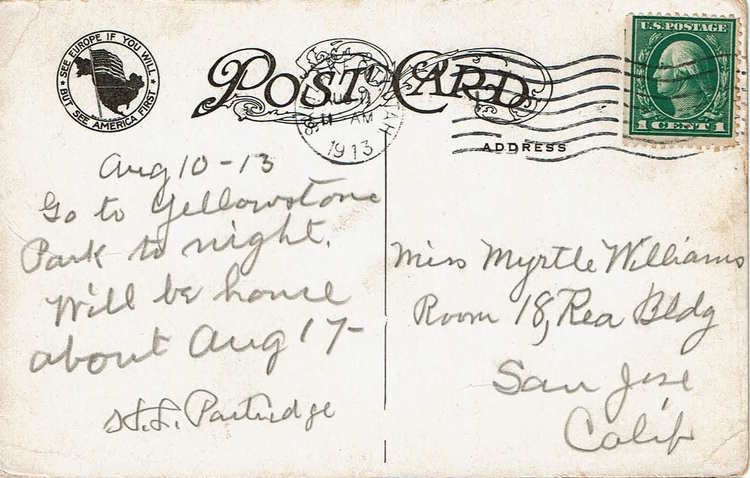 SEE EUROPE IF YOU WILL
BUT SEE AMERICA FIRST
POST CARD
AM
1913
U.S. POSTAGE
1 CENT 1
ADDRESS
Aug 10-13
Go to Yellowstone
Park to night.
Will be home
about Aug 17-
Partridge
Miss Myrtle Williams
Room 18, Rea Bldg
San Jose
Calif